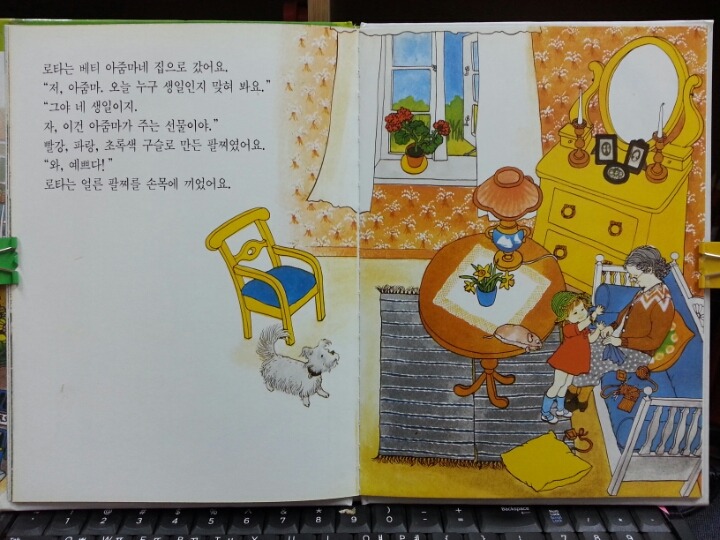 로타는 베티 아줌마네 집으로 갔어요.
“저, 아줌마. 오늘 누구 생일인지 맞혀 봐요.”
“그야 네 생일이지.
자, 이건 아줌마가 주는 선물이야.”
빨강, 파랑, 초록색 구슬로 만든 팔찌였어요.
“와, 예쁘다!”
로타는 얼른 팔찌를 손목에 끼었어요.
Backspace